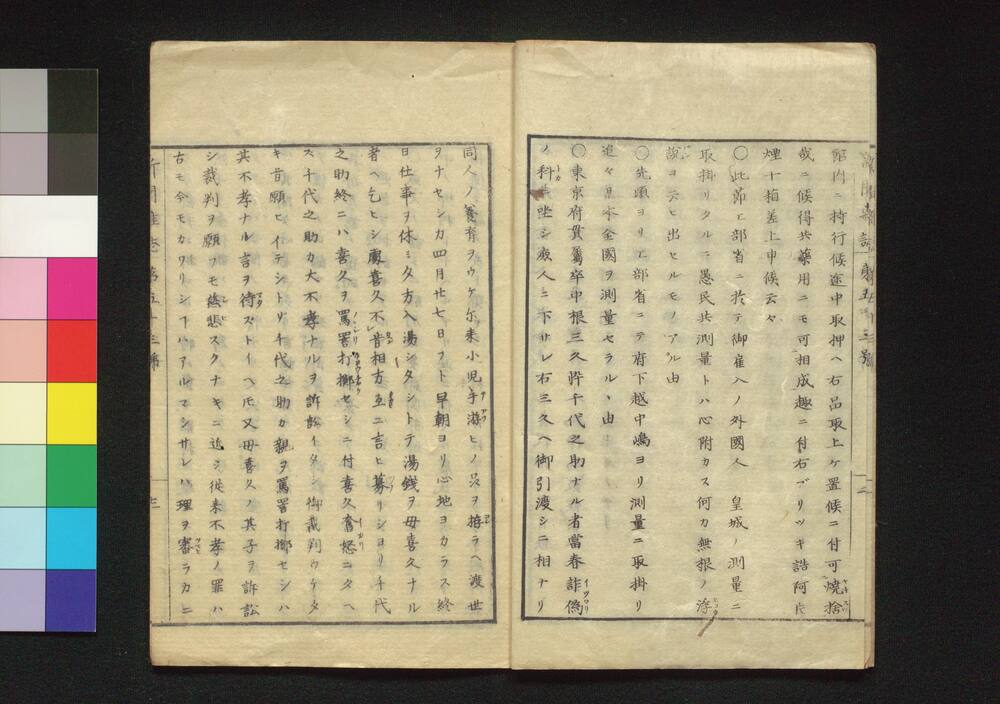 館内ニ持行候途中取押ヘ右品取上ケ置候ニ付可燒捨
哉ニ候得共藥用ニモ可相成趣ニ付右ブリツキ詰阿片
煙十箱差上申候云々
〇此節工部省ニ於テ御雇入ノ外國人 皇城ノ測量ニ
取掛リタルニ愚民共測量トハ心附カス何カ無根ノ浮
說ヨ云ヒ出セルモノアル由
〇先頃ヨリ工部省ニテ府下越中嶋ヨリ測量ニ取掛リ
追々日本全國ヲ測量セラルヽ由
〇東京府貫屬卒中根三久忰千代之助ナル者當春詐僞
ノ科ニ坐シ廢人ニ下サレ右三久ヘ御引渡シニ相ナリ
同人ノ養育ヲウケ尓来小児手游ヒノ品ヲ拵ラヘ渡世
ヲナセシカ四月廿七日フト早朝ヨリ心地ヨカラス終
日仕事ヲ休ミ夕方入湯シタシトテ湯錢ヲ母喜久ナル
者ヘ乞ヒシ處喜久不肯相方互ニ言ヒ募リシヨリ千代
之助終ニハ喜久ヲ罵詈打擲セシニ付喜久奮怒ニタヘ
ス千代之助カ大不孝ナルヲ訴訟イタシ御裁判ウケタ
キ旨願ヒイテシトソ千代之助カ親ヲ罵詈打擲セシハ
其不孝ナル言ヲ待ストイヘ𪜈又母喜久ノ其子ヲ訴訟
シ裁判ヲ願フモ慈悲スクナキニ近シ従来不孝ノ罪ハ
古モ今モカワリシヿハアルマシサレハ理ヲ審ラカニ
新聞雜誌 第五十三號
三